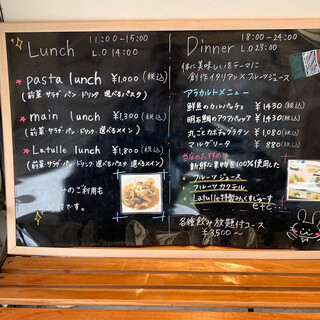 Lunch
11:00-15:00
L.O 14:00
pasta lunch ¥1,000 (税込)
(前菜・サラダ・パン・ドリンク 選べるパスタ)
main lunch ¥1,300 (税込)
(前菜・サラダ・パン・ドリンク 選べるメイン)
Latulle lunch ¥1,800 (税込)
(前菜・サラダ・パン・ドリンク 選べるパスタ 選べるメイン)
のご利用も
です。
Dinner
18:00-24:00
L.O 23:00
体に美味しいをテーマに
創作イタリアン×フルーツジュース
アラカルトメニュー
鮮魚のカルパッチョ ¥1430 (税込)
明石鯛のアクアパッツァ ¥1430 (税込)
丸ごとカニチーズグラタン ¥1,080 (税込)
マルゲリータ ¥880 (税込)
当店のおすすめは
新鮮な果物を100%使用した
フルーツジュース
フルーツカクテル
Latulle特製みっくすじゅーす
etc...
各種飲み放題付コース
¥3500〜